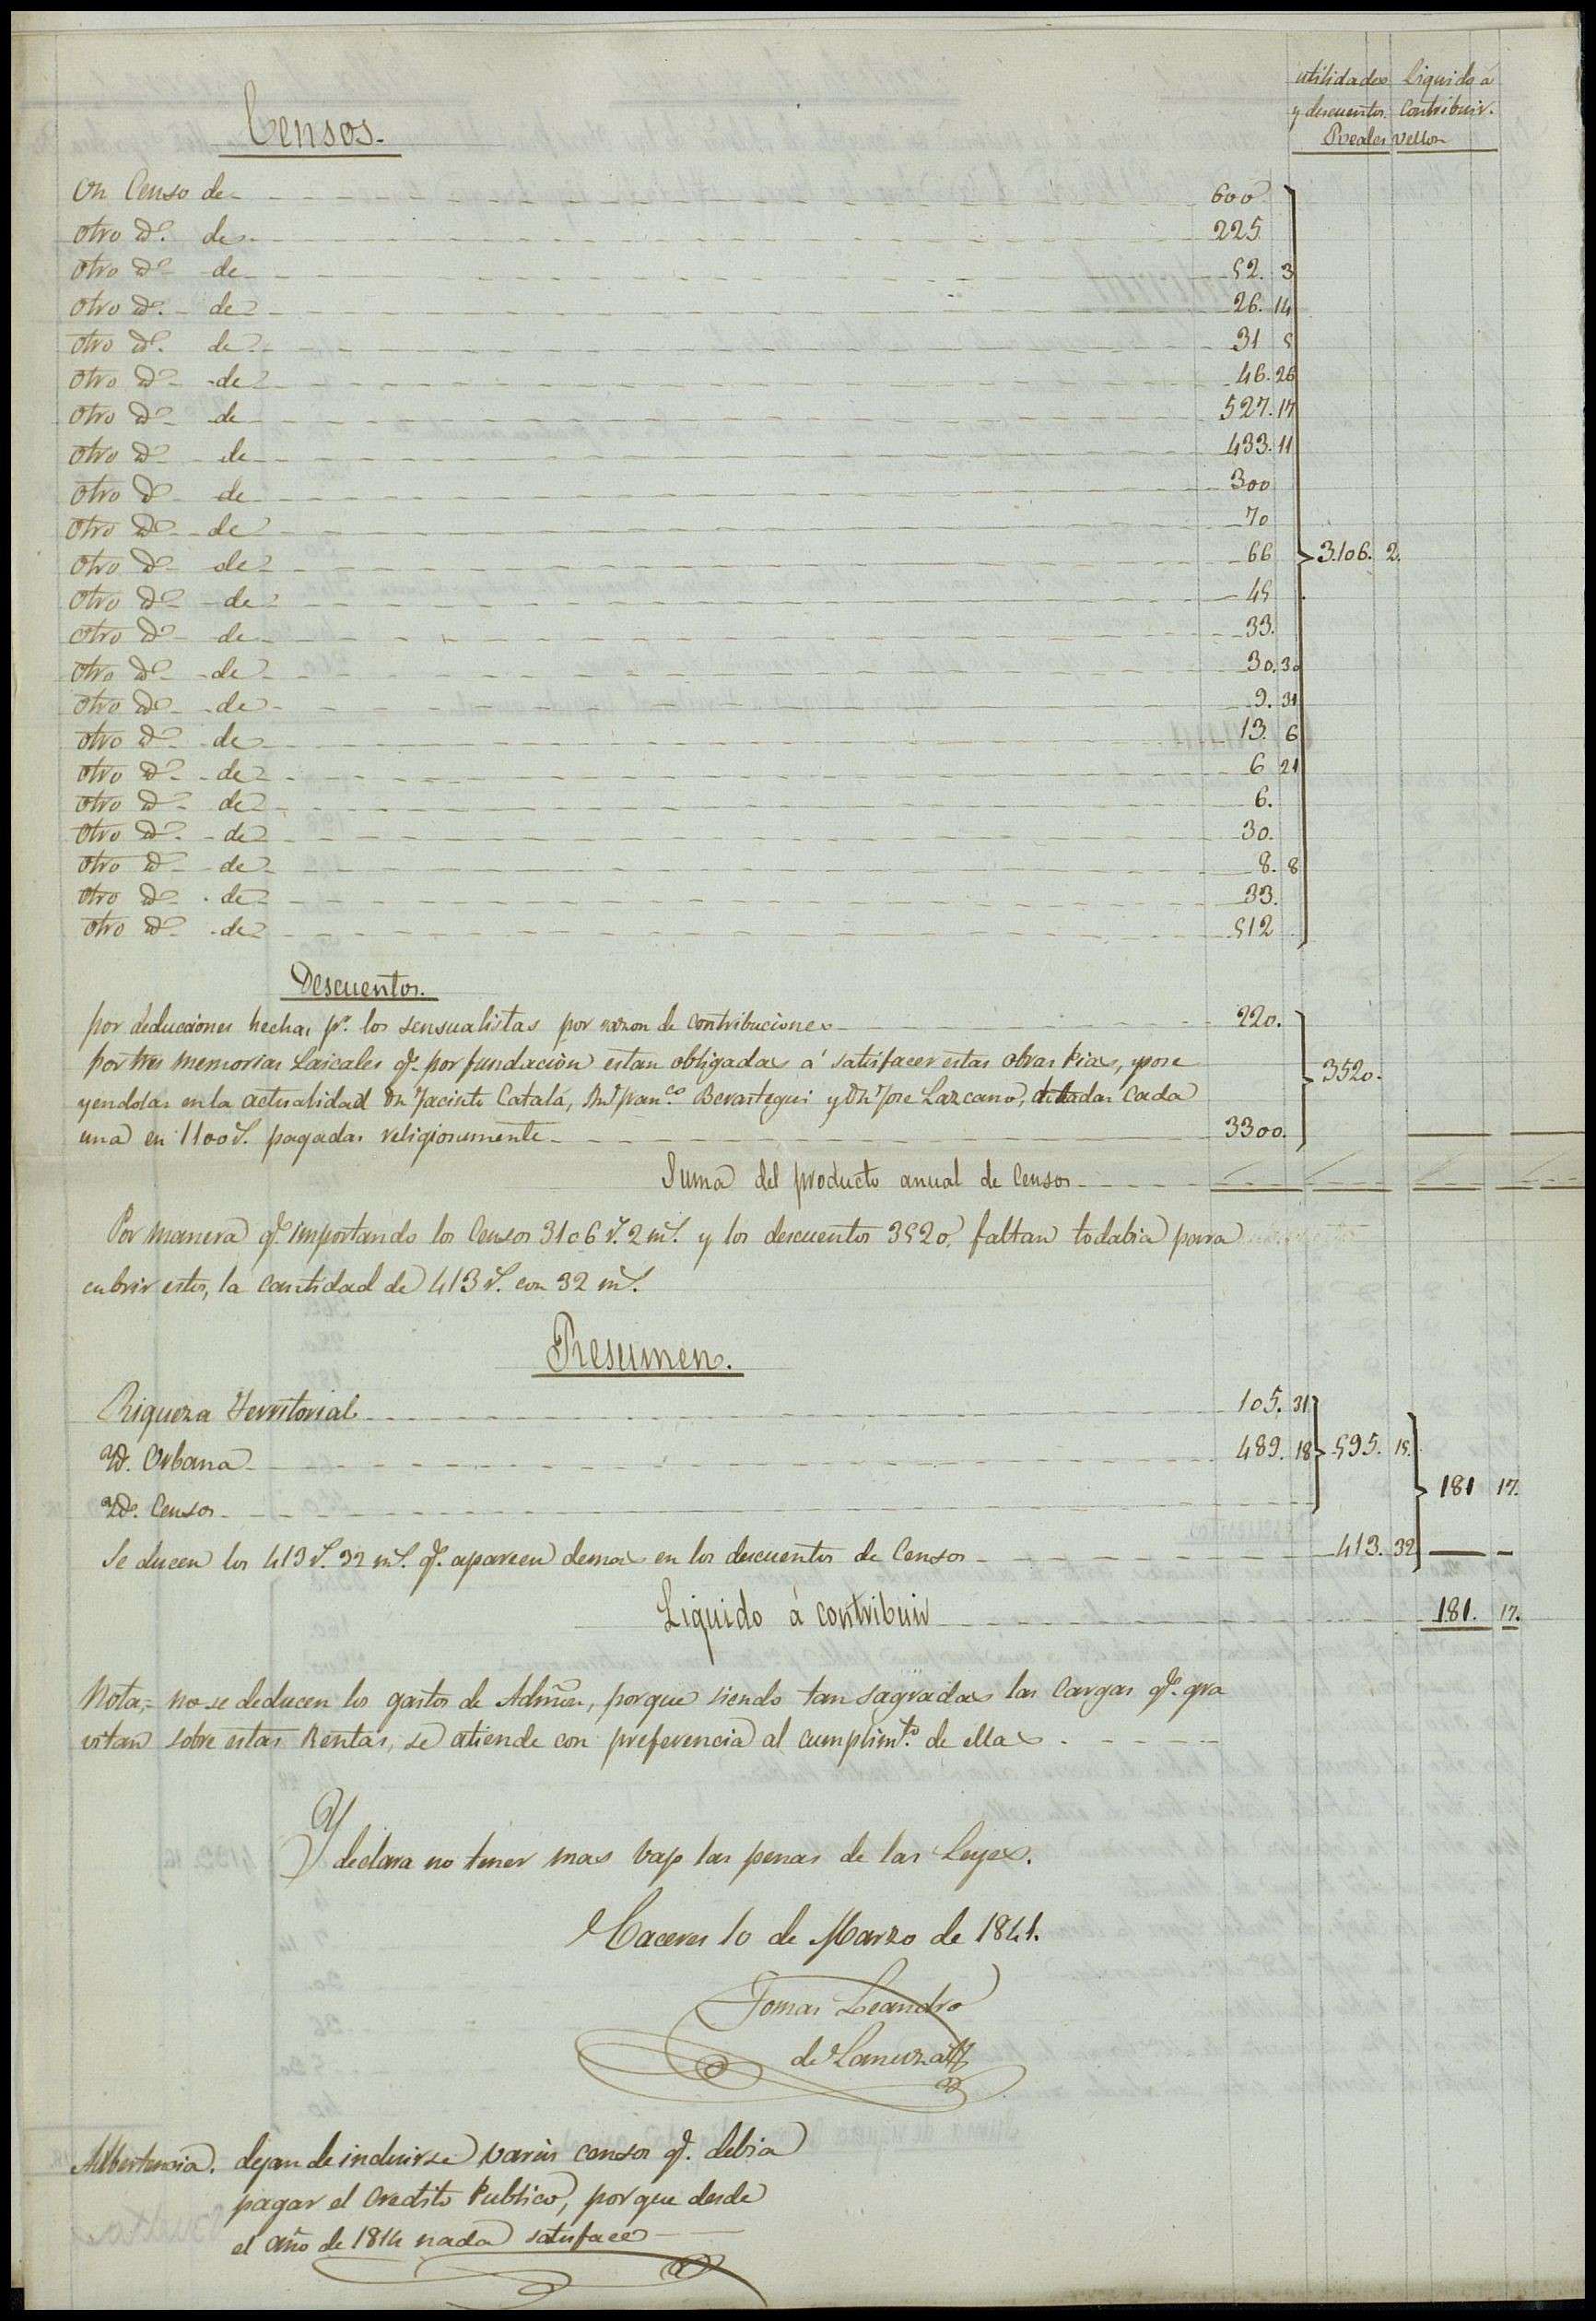 utilidades Liquido a
y descuentos. Contribuir.
Reales vellon
Censos.
Un Censo de 600
otro Yd. de 225.
otro Yd. de 52. 3
otro Yd. de 26. 14
otro Yd. de 31 5
otro Yd. de 46. 26
otro Yd. de 527. 17
otro Yd. de 433. 11
otro Yd. de 300
otro Yd. de 70
otro Yd. de 66 3.106. 2.
otro Yd. de 45
otro Yd. de 33.
otro Yd. de 30. 30
otro Yd. de 9. 31
otro Yd. de 13. 6
otro Yd. de 6 21
otro Yd. de 6.
otro Yd. de 30.
otro Yd. de 8. 8
otro Yd. de 33.
otro Yd. de 512
Descuentos.
por deducciones hechas pr. los sensualistas por razon de contribuciones 220.
por tres memorias Laicales qe. por fundación estan obligadas á satisfacer estas obras Pias, y pose 3520.
yendolas en la actualidad Dn Jacinto Catalá, Dn Franco. Berastegui y Dn Jose Lazcano, cada
una en 1100 rs. pagadas religiosamente 3300.
Suma del producto anual de Censos
Por manera qe. importando los Censos 3106 rs. 2 ms. y los descuentos 3520, faltan todabia para
cubrir estos, la cantidad de 413 rs. con 32 ms.
Resumen.
Riqueza Territorial 105. 31
Yd. Urbana 489. 18 595. 15.
Yd. Censos 181 17.
Se ducen los 413 rs. 32 ms. qe. aparecen demas en los descuentos de Censos 413. 32
Liquido á contribuir 181. 17.
Nota,= no se deducen los gastos de Admon., porque siendo tan sagradas las Cargas qe. gra
vitan sobre estas Rentas, se atiende con preferencia al cumplimto. de ellas
Y
declara no tener mas bajo las penas de las Leyes.
Caceres 10 de Marzo de 1841.
Tomas Leandro
de Lanuza
Albertencia. dejan de incluirse varios censos qe. debia
pagar el Credito Publico, porque desde
el año de 1814 nada satisface